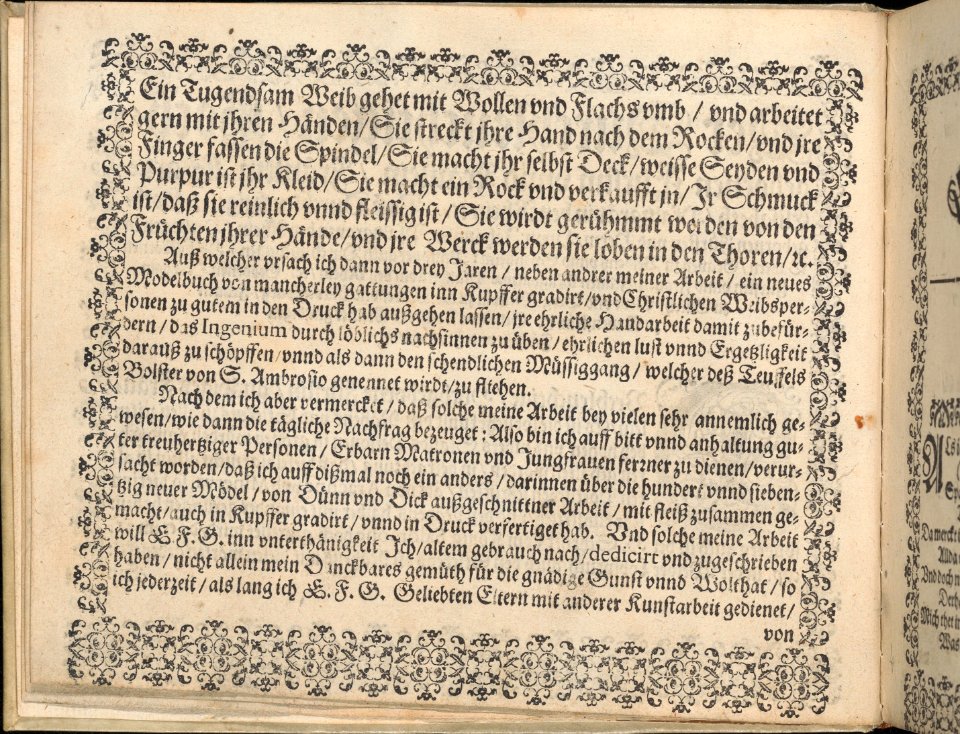 Ein Tugendsam Weib gehet mit Wollen vnd Flachs vmb / vnd arbeitet
gern mit jhren Händen/Sie streckt jhre Hand nach dem Rocken/vnd jre
Finger fassen die Spindel/Sie macht jhr selbst Deck/weisse Seyden vnd
Purpur ist jhr Kleid/Sie macht ein Rock vnd verkaufft jn/Jr Schmuck
ist/daß sie reinlich vnnd fleissig ist/Sie wirdt gerühmmt werden von den
Früchten jhrer Hände/vnd jre Werck werden sie loben in den Thoren/ꝛc.
Auß welcher vrsach ich dann vor drey Jaren / neben andrer meiner Arbeit / ein neues
Modelbuch von mancherley gattungen inn Kupffer gradirt/vnd Christlichen Weibsper-
sonen zu gutem in den Druck hab außgehen lassen/jre ehrliche Handarbeit damit zubefür-
dern/das Ingenium durch löblichs nachsinnen zu üben/ehrlichen lust vnnd Ergetzligkeit
darauß zu schöpffen/vnnd als dann den schendlichen Müssiggang/welcher deß Teuffels
Bolster von S. Ambrosio genennet wirdt/zu fliehen.
Nach dem ich aber vermercket/daß solche meine Arbeit bey vielen sehr annemlich ge-
wesen/wie dann die tägliche Nachfrag bezeuget: Also bin ich auff bitt vnnd anhaltung gu-
ter treuhertziger Personen/Erbarn Matronen vnd Jungfrauen ferrner zu dienen/verur-
sacht worden/daß ich auff dißmal noch ein anders/darinnen über die hundert vnnd sieben-
tzig neuer Mödel/von Dünn vnd Dick außgeschnittner Arbeit/mit fleiß zusammen ge-
macht/auch in Kupffer gradirt/vnnd in Druck verfertiget hab. Vnd solche meine Arbeit
will E. F. G. inn vnterthänigkeit Ich/altem gebrauch nach/dedicirt vnd zugeschrieben
haben/nicht allein mein Danckbares gemüth für die gnädige Gunst vnnd Wolthat/so
ich jederzeit/als lang ich E. F. G. Geliebten Eltern mit anderer Kunstarbeit gedienet/
von